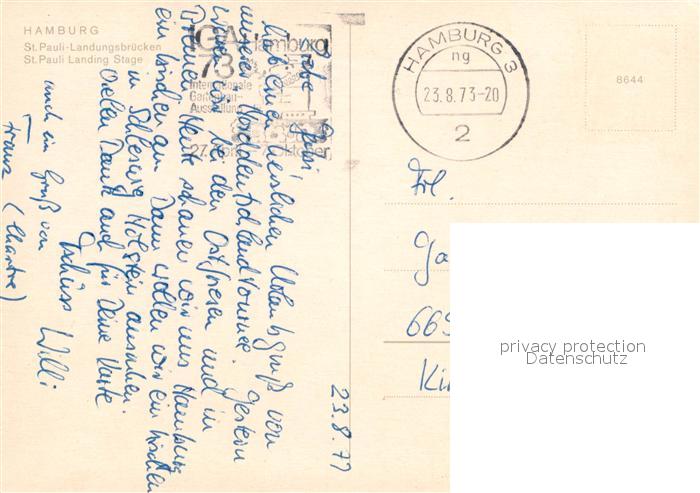 HAMBURG
St.Pauli-Landungsbrücken
St.Pauli Landing Stage
IGA Hamburg
73
Internationale
Gartenbau-
Ausstellung
27. Oktober
HAMBURG 3
ng
23.8.73-20
2
8644
23.8.77
Liebe Gabi
einen herzlichen Urlaubsgruß von
unserer Norddeutschlandtournee. Gestern
waren wir bei den Ostfriesen und in
Bremen. Heute schauen wir uns Hamburg
ein bischen an. Dann wollen wir ein bischen
in Schleswig Holstein ansehen.
Vielen Dank auch für Deine Karte
Tschüss Willi
auch ein Gruß von
Franz
Frl.
Ga
669
privacy protection
Datenschutz